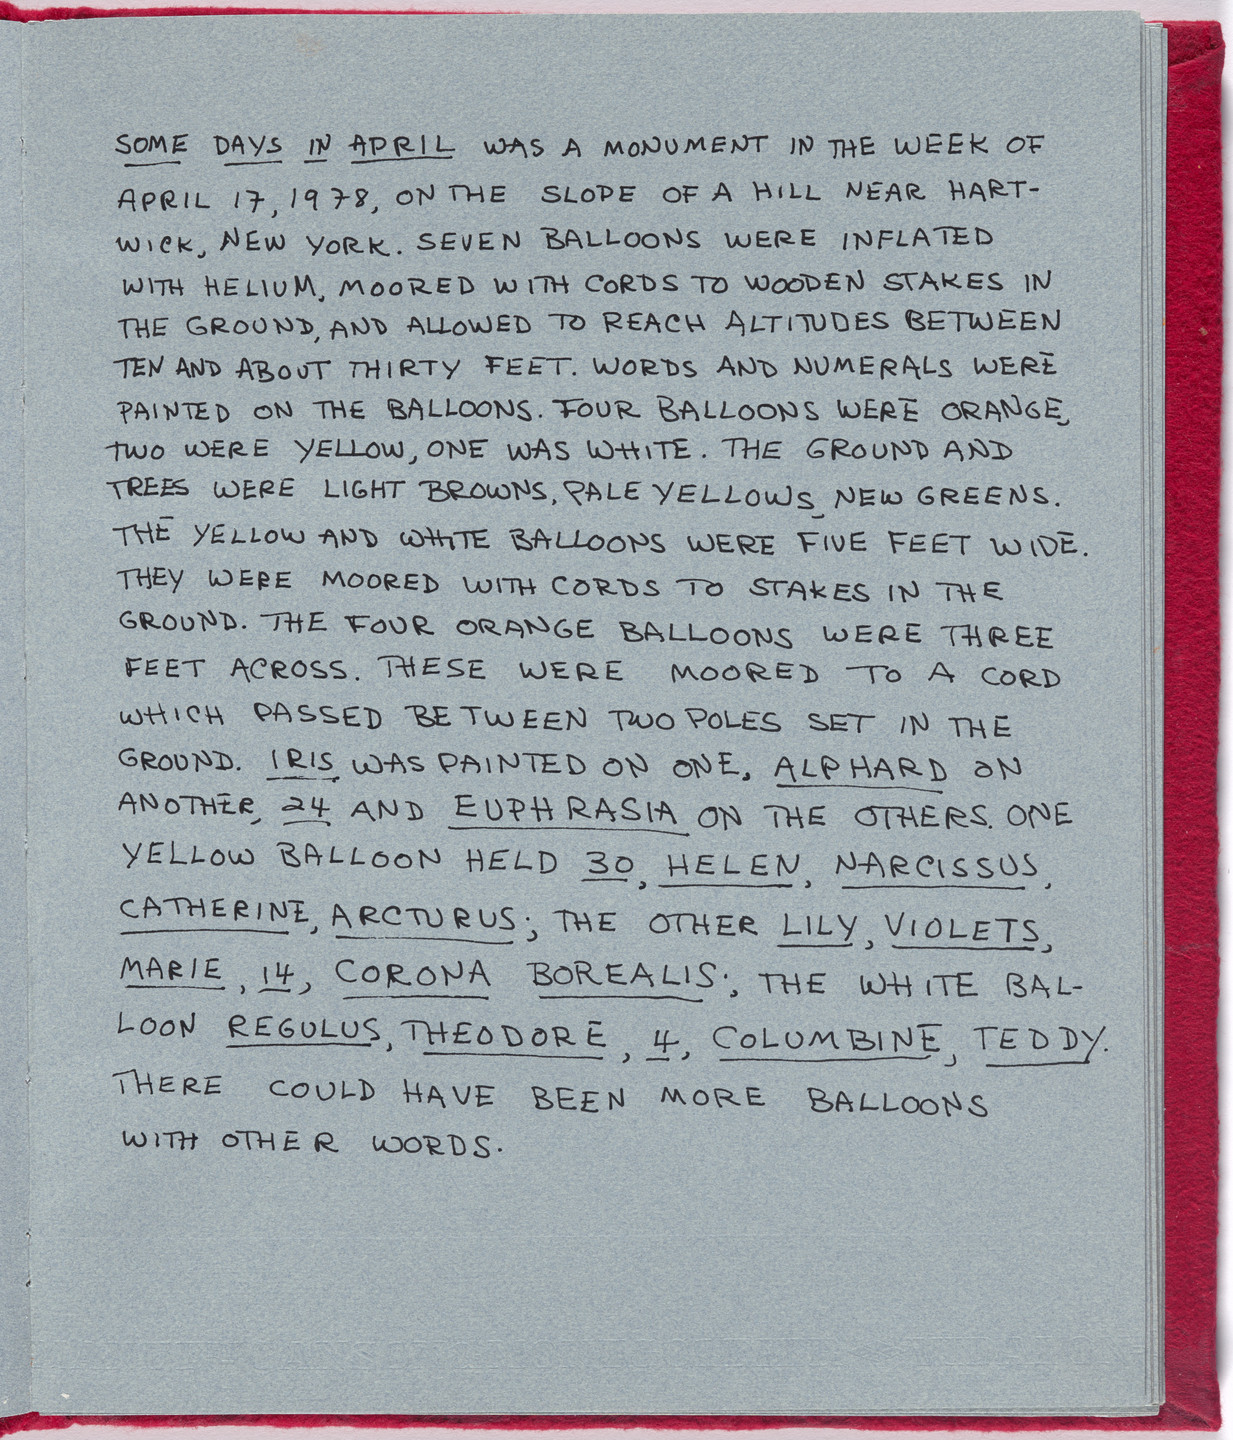 SOME DAYS IN APRIL WAS A MONUMENT IN THE WEEK OF
APRIL 17, 1978, ON THE SLOPE OF A HILL NEAR HART-
WICK, NEW YORK. SEVEN BALLOONS WERE INFLATED
WITH HELIUM, MOORED WITH CORDS TO WOODEN STAKES IN
THE GROUND, AND ALLOWED TO REACH ALTITUDES BETWEEN
TEN AND ABOUT THIRTY FEET. WORDS AND NUMERALS WERE
PAINTED ON THE BALLOONS. FOUR BALLOONS WERE ORANGE,
TWO WERE YELLOW, ONE WAS WHITE. THE GROUND AND
TREES WERE LIGHT BROWNS, PALE YELLOWS, NEW GREENS.
THE YELLOW AND WHITE BALLOONS WERE FIVE FEET WIDE.
THEY WERE MOORED WITH CORDS TO STAKES IN THE
GROUND. THE FOUR ORANGE BALLOONS WERE THREE
FEET ACROSS. THESE WERE MOORED TO A CORD
WHICH PASSED BETWEEN TWO POLES SET IN THE
GROUND. IRIS WAS PAINTED ON ONE, ALPHARD ON
ANOTHER, 24 AND EUPHRASIA ON THE OTHERS. ONE
YELLOW BALLOON HELD 30, HELEN, NARCISSUS,
CATHERINE, ARCTURUS; THE OTHER LILY, VIOLETS,
MARIE, 14, CORONA BOREALIS; THE WHITE BAL-
LOON REGULUS, THEODORE, 4, COLUMBINE, TEDDY.
THERE COULD HAVE BEEN MORE BALLOONS
WITH OTHER WORDS.